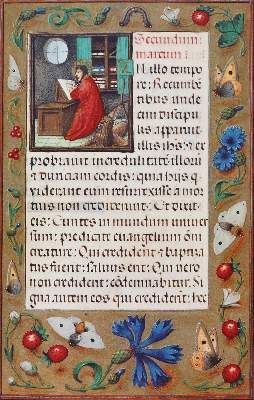 Secundum
marcum:
N illo tempo
re: Recumben
tibus unde
cim discipu
lis apparuit
illis ihs: et ex
probrauit incredulitatē illorū
et duriciam cordis: quia hijs q
uiderant eum resurrexisse a mor
tuis non crediderunt: Et dixit
eis: Euntes in mundum uniuer
sum: predicate euangelium oīni
creature: Qui crediderit et bapti
tus fuerit: saluus erit: Qui uero
non crediderit: cōdemnabitur: Si
gna autem eos qui crediderīt: hec